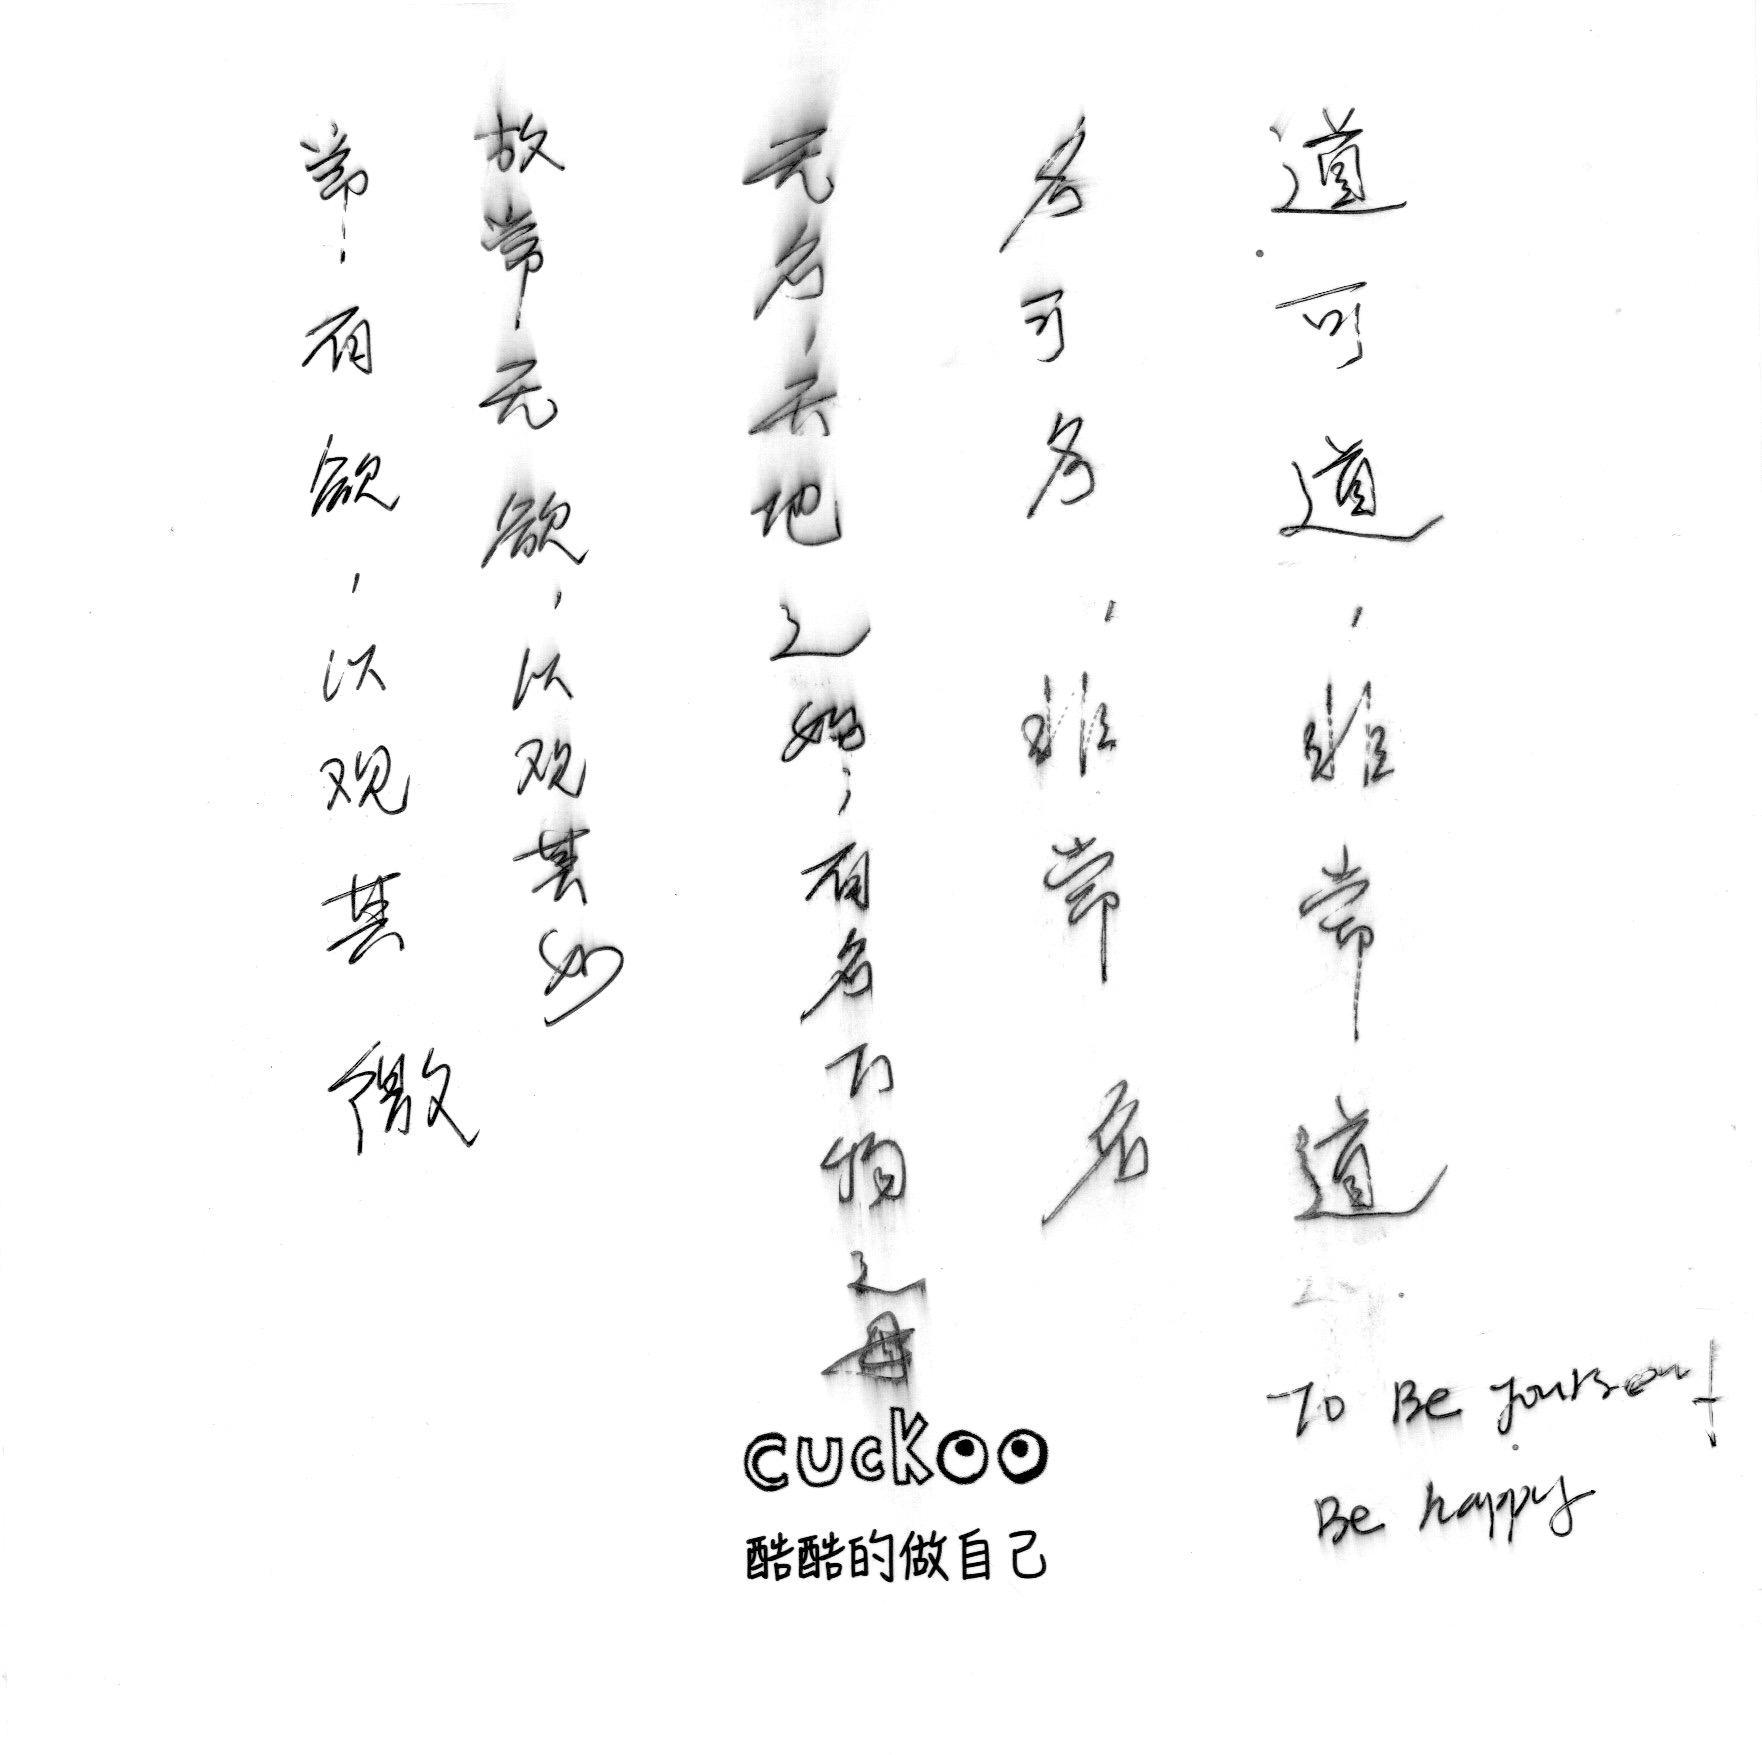 道可道，非常道
名可名，非常名
无名，天地之始；有名万物之母
故常无欲，以观其妙
常有欲，以观其徼
To Be yourself
Be happy
cuckoo
酷酷的做自己